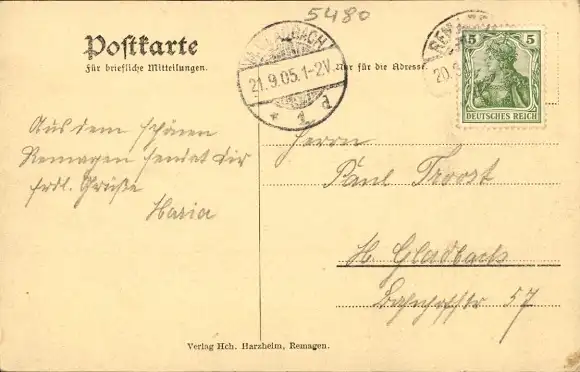 5480
Postkarte
Für briefliche Mitteilungen.
Nur für die Adresse.
21.9.05.1-2V.
* 1 d
REM
20.9
5 5
DEUTSCHES REICH
Aus dem schönen
Remagen sendet Dir
frdl. Grüße
Maria
Herrn
Paul Troost
M. Gladbach
Bahnhofstr 57
Verlag Hch. Harzheim, Remagen.